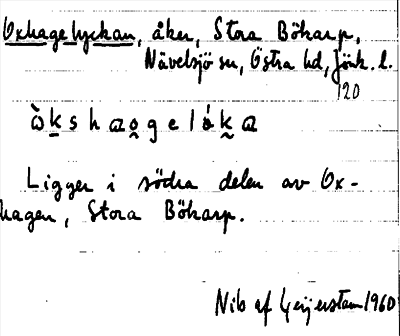 Oxhagelyckan, åker, Stora Bökarp,
Nävelsjö sn, Östra hd, Jönk. l.
120
ὼk̲shao̰gelók̰a
Ligger i södra delen av Ox-
hagen, Stora Bökarp.
Nib af Geijerstam 1960